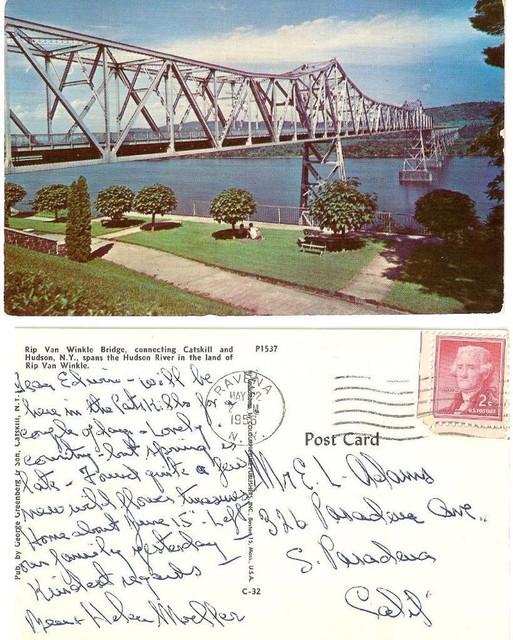 Rip Van Winkle Bridge, connecting Catskill and
Hudson, N.Y., spans the Hudson River in the land of
Rip Van Winkle.
P1537
Dear Edwin - will be
here in the Catskills for a
couple of days - Lovely
country but spring is
late - Found quite a few
new wild flower treasures
Home about June 15" - Left
our family yesterday
Kindest regards -
Helen Moeller
Pub. by George Greenberg & Son, Catskill, N.Y.
RAVENA
MAY 22
M
1956
N.Y.
2¢
U.S. POSTAGE
Post Card
Mr E. L. Adams
326 Pasadena Ave.,
S. Pasadena
Calif
Boston 15, Mass., U.S.A.
C-32